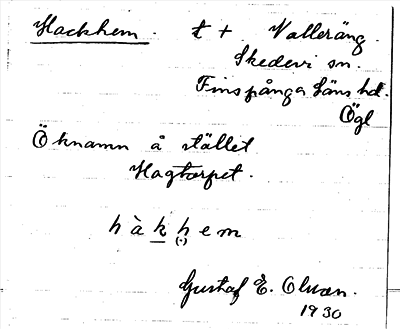 Hackhem. t + Valleräng.
Skedevi sn.
Finspånga Läns hd.
Ögl
Öknamn å stället
Hagtorpet.
h à k h e m
(·)
Gustaf E. Olson.
1930